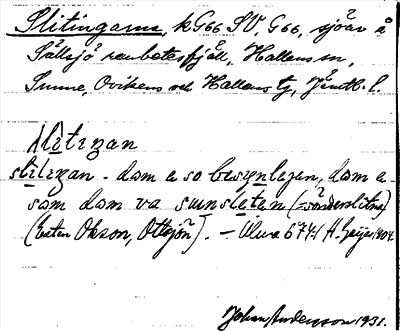 Slitingarna, kG66 SV, G66, sjöar å
Sällsjö renbetesfjäll, Hallens sn,
Sunne, Ovikens och Hallens tg, Jämtl. l.
slitiŋan - dom ä so besynlejen, dom ä
som dom va sunsletan (= sönderslitna)
(Esten Olsson, Ottsjön). - Ulma 677:1 H. Geijer 1904.
Johan Andersson 1931.